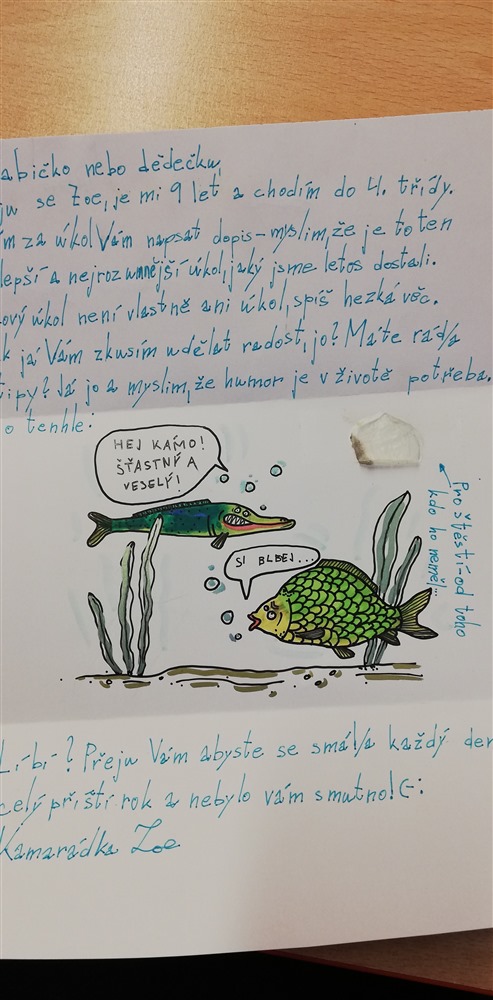 abičko nebo dědečku,
ju se Zoe, je mi 9 let a chodím do 4. třídy.
m za úkol Vám napsat dopis-myslim, že je to ten
lepší a nejrozumnější úkol, jaký jsme letos dostali.
ový úkol není vlastně ani úkol, spíš hezká věc.
k já Vám zkusím udělat radost, jo? Máte rád/a
tipy? Já jo a myslim, že humor je v životě potřeba.
o tenhle:
HEJ KÁMO!
ŠŤASTNÝ A
VESELÝ!
SI BLBEJ...
Pro štěstí-od toho
kdo ho neměl...
Líbí? Přeju Vám abyste se smál/a každý den
celý příští rok a nebylo vám smutno! (-:
Kamarádka Zoe